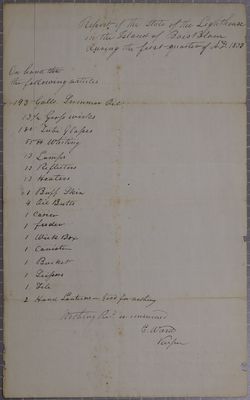 Report of the State of the Lighthouse
on the Island of Bois Blanc
during the first quarter of A.D. 1838
On hand the
the following articles
193 Galls Summer Oil
13½ Gross wicks
Tube Glasses
Whiting
13 Lamps
Reflectors
13 Heaters
1 Buff Skin
4 Oil Butts
1
1 feeder
1 Wick Box
1 Canister
1 Bucket
1 Scissors
1 File
2 Hand Lanterns — Good for nothing
Nothing
E. Ward
Keeper